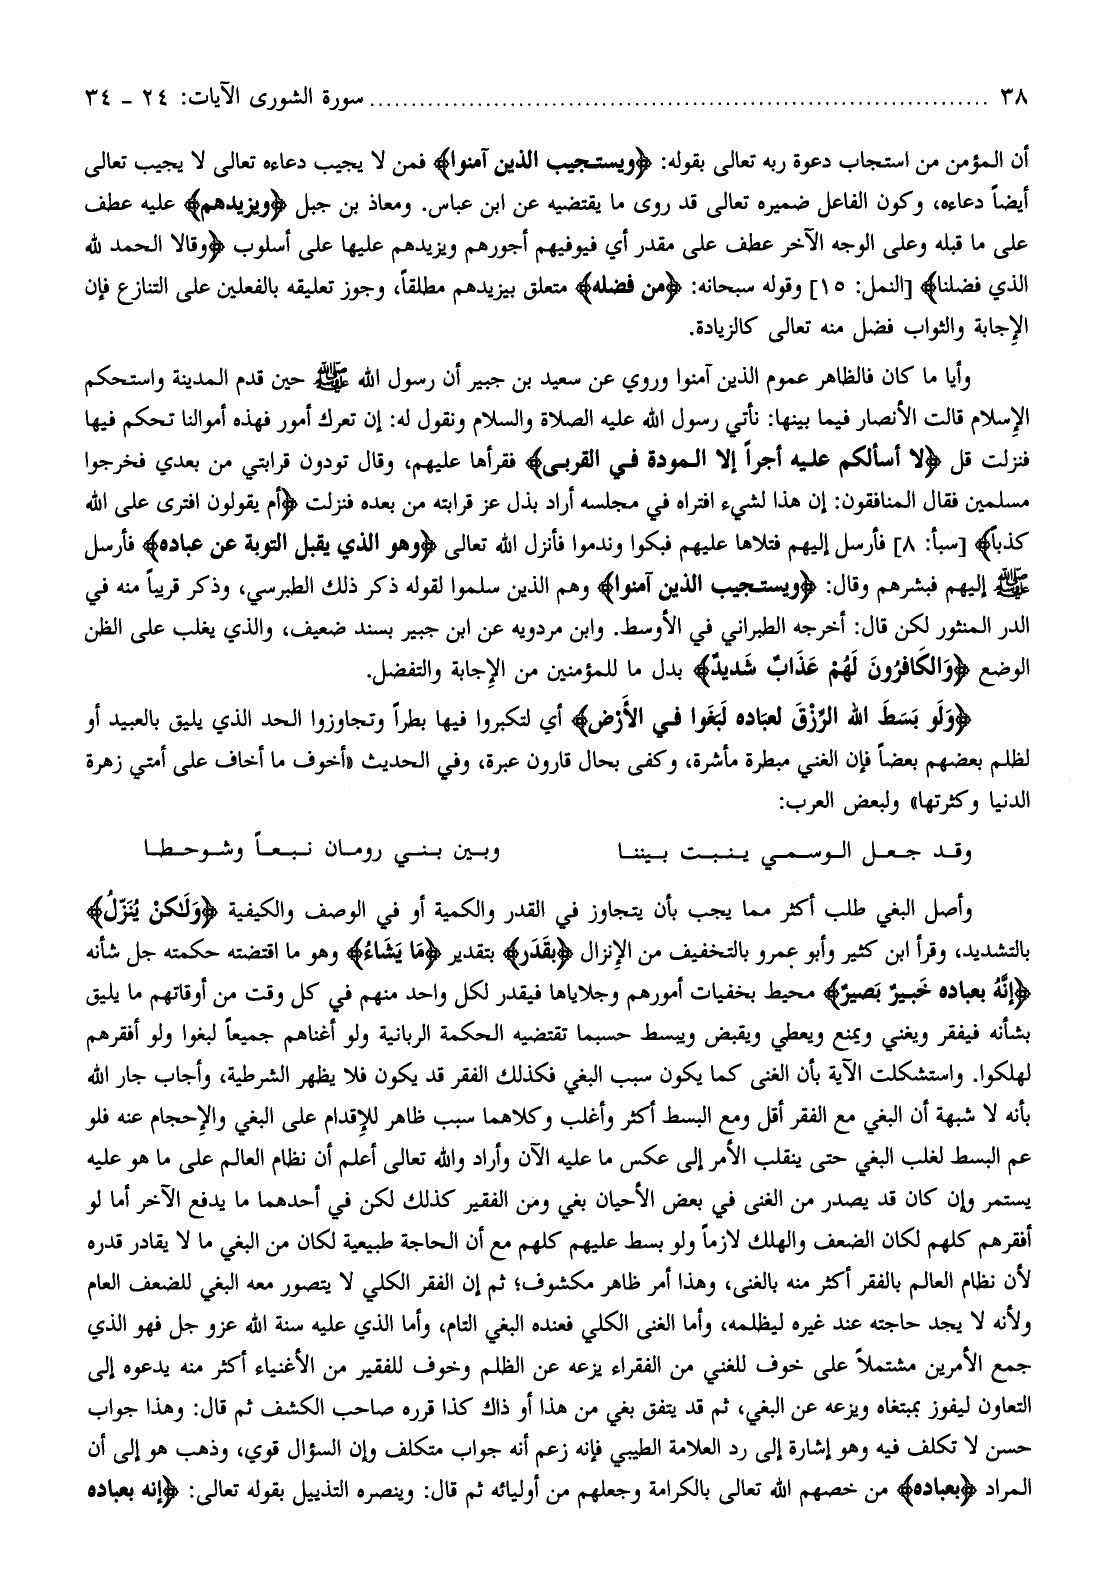 ٣٨ ........................................................................ سورة الشورى الآيات: ٢٤ ـ ٣٤
أن المؤمن من استجاب دعوة ربه تعالى بقوله: ﴿ويستجيب الذين آمنوا﴾ فمن لا يجيب دعاءه تعالى لا يجيب تعالى
أيضاً دعاءه، وكون الفاعل ضميره تعالى قد روى ما يقتضيه عن ابن عباس. ومعاذ بن جبل ﴿ويزيدهم﴾ عليه عطف
على ما قبله وعلى الوجه الآخر عطف على مقدر أي فيوفيهم أجورهم ويزيدهم عليها على أسلوب ﴿وقالا الحمد لله
الذي فضلنا﴾ [النمل: ١٥] وقوله سبحانه: ﴿من فضله﴾ متعلق بيزيدهم مطلقاً، وجوز تعليقه بالفعلين على التنازع فإن
الإِجابة والثواب فضل منه تعالى كالزيادة.
وأيا ما كان فالظاهر عموم الذين آمنوا وروي عن سعيد بن جبير أن رسول الله ﷺ حين قدم المدينة واستحكم
الإِسلام قالت الأنصار فيما بينها: نأتي رسول الله عليه الصلاة والسلام ونقول له: إن تعرك أمور فهذه أموالنا تحكم فيها
فنزلت قل ﴿لا أسألكم عليه أجراً إلا المودة في القربى﴾ فقرأها عليهم، وقال تودون قرابتي من بعدي فخرجوا
مسلمين فقال المنافقون: إن هذا لشيء افتراه في مجلسه أراد بذل عز قرابته من بعده فنزلت ﴿أم يقولون افترى على الله
كذباً﴾ [سبأ: ٨] فأرسل إليهم فتلاها عليهم فبكوا وندموا فأنزل الله تعالى ﴿وهو الذي يقبل التوبة عن عباده﴾ فأرسل
ﷺ إليهم فبشرهم وقال: ﴿ويستجيب الذين آمنوا﴾ وهم الذين سلموا لقوله ذكر ذلك الطبرسي، وذكر قريباً منه في
الدر المنثور لكن قال: أخرجه الطبراني في الأوسط. وابن مردويه عن ابن جبير بسند ضعيف، والذي يغلب على الظن
الوضع ﴿وَالكَافرُونَ لَهُمْ عَذَابٌ شَديدٌ﴾ بدل ما للمؤمنين من الإِجابة والتفضل.
﴿وَلَو بَسَطَ الله الرِّزْقَ لعبَاده لَبَغَوا في الأَرْض﴾ أي لتكبروا فيها بطراً وتجاوزوا الحد الذي يليق بالعبيد أو
لظلم بعضهم بعضاً فإن الغني مبطرة مأشرة، وكفى بحال قارون عبرة، وفي الحديث «أخوف ما أخاف على أمتي زهرة
الدنيا وكثرتها» ولبعض العرب:
وقد جعل الوسمي ينبت بيننا وبين بني رومان نبعاً وشوحطا
وأصل البغي طلب أكثر مما يجب بأن يتجاوز في القدر والكمية أو في الوصف والكيفية ﴿وَلَاكنْ يُنَزّلُ﴾
بالتشديد، وقرأ ابن كثير وأبو عمرو بالتخفيف من الإِنزال ﴿بقَدَر﴾ بتقدير ﴿مَا يَشَاءُ﴾ وهو ما اقتضته حكمته جل شأنه
﴿إنَّهُ بعباده خَبيرٌ بَصيرٌ﴾ محيط بخفيات أمورهم وجلاياها فيقدر لكل واحد منهم في كل وقت من أوقاتهم ما يليق
بشأنه فيفقر ويغني ويمنع ويعطي ويقبض ويبسط حسبما تقتضيه الحكمة الربانية ولو أغناهم جميعاً لبغوا ولو أفقرهم
لهلكوا. واستشكلت الآية بأن الغنى كما يكون سبب البغي فكذلك الفقر قد يكون فلا يظهر الشرطية، وأجاب جار الله
بأنه لا شبهة أن البغي مع الفقر أقل ومع البسط أكثر وأغلب وكلاهما سبب ظاهر للإِقدام على البغي والإِحجام عنه فلو
عم البسط لغلب البغي حتى ينقلب الأمر إلى عكس ما عليه الآن وأراد والله تعالى أعلم أن نظام العالم على ما هو عليه
يستمر وإن كان قد يصدر من الغنى في بعض الأحيان بغي ومن الفقير كذلك لكن في أحدهما ما يدفع الآخر أما لو
أفقرهم كلهم لكان الضعف والهلك لازماً ولو بسط عليهم كلهم مع أن الحاجة طبيعية لكان من البغي ما لا يقادر قدره
لأن نظام العالم بالفقر أكثر منه بالغنى، وهذا أمر ظاهر مكشوف؛ ثم إن الفقر الكلي لا يتصور معه البغي للضعف العام
ولأنه لا يجد حاجته عند غيره ليظلمه، وأما الغنى الكلي فعنده البغي التام، وأما الذي عليه سنة الله عزو جل فهو الذي
جمع الأمرين مشتملاً على خوف للغني من الفقراء يزعه عن الظلم وخوف للفقير من الأغنياء أكثر منه يدعوه إلى
التعاون ليفوز بمبتغاه ويزعه عن البغي، ثم قد يتفق بغي من هذا أو ذاك كذا قرره صاحب الكشف ثم قال: وهذا جواب
حسن لا تكلف فيه وهو إشارة إلى رد العلامة الطيبي فإنه زعم أنه جواب متكلف وإن السؤال قوي، وذهب هو إلى أن
المراد ﴿بعباده﴾ من خصهم الله تعالى بالكرامة وجعلهم من أوليائه ثم قال: وينصره التذييل بقوله تعالى: ﴿إنه بعباده